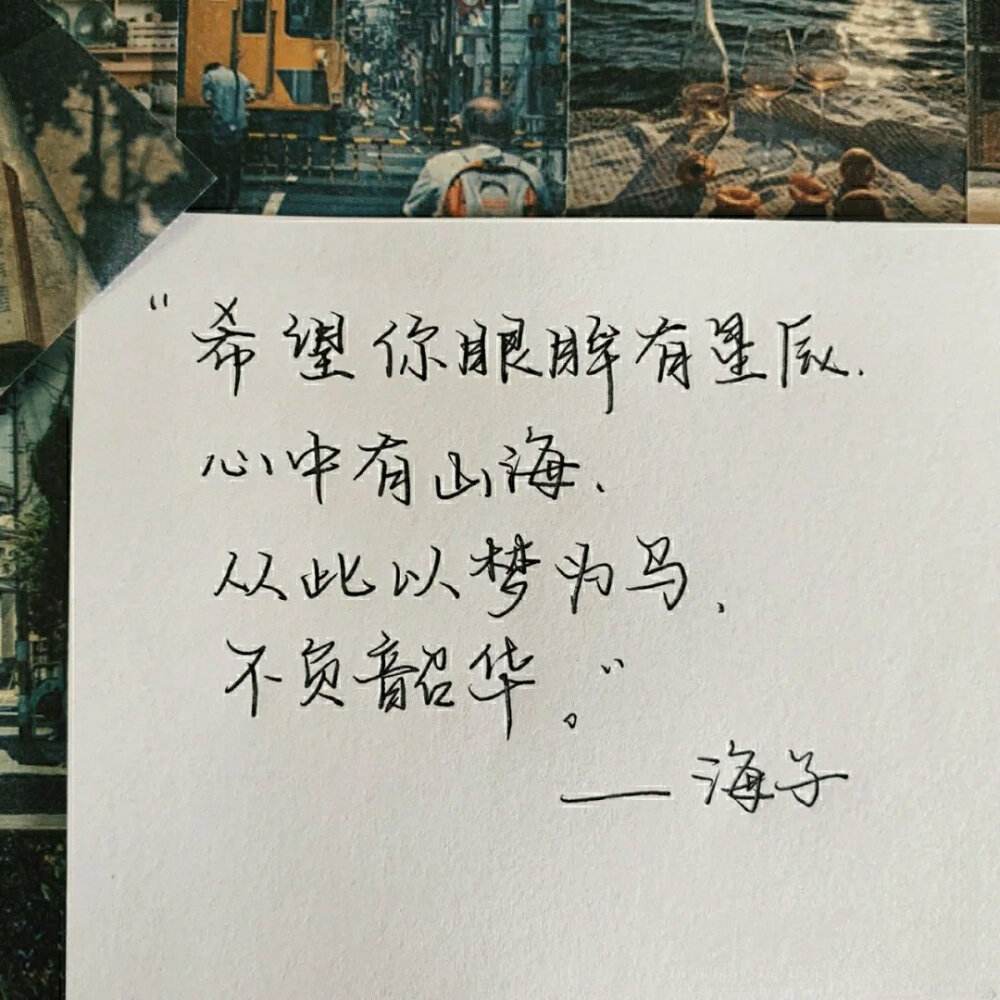 “希望你眼眸有星辰.
心中有山海、
从此以梦为马、
不负韶华。”
——海子